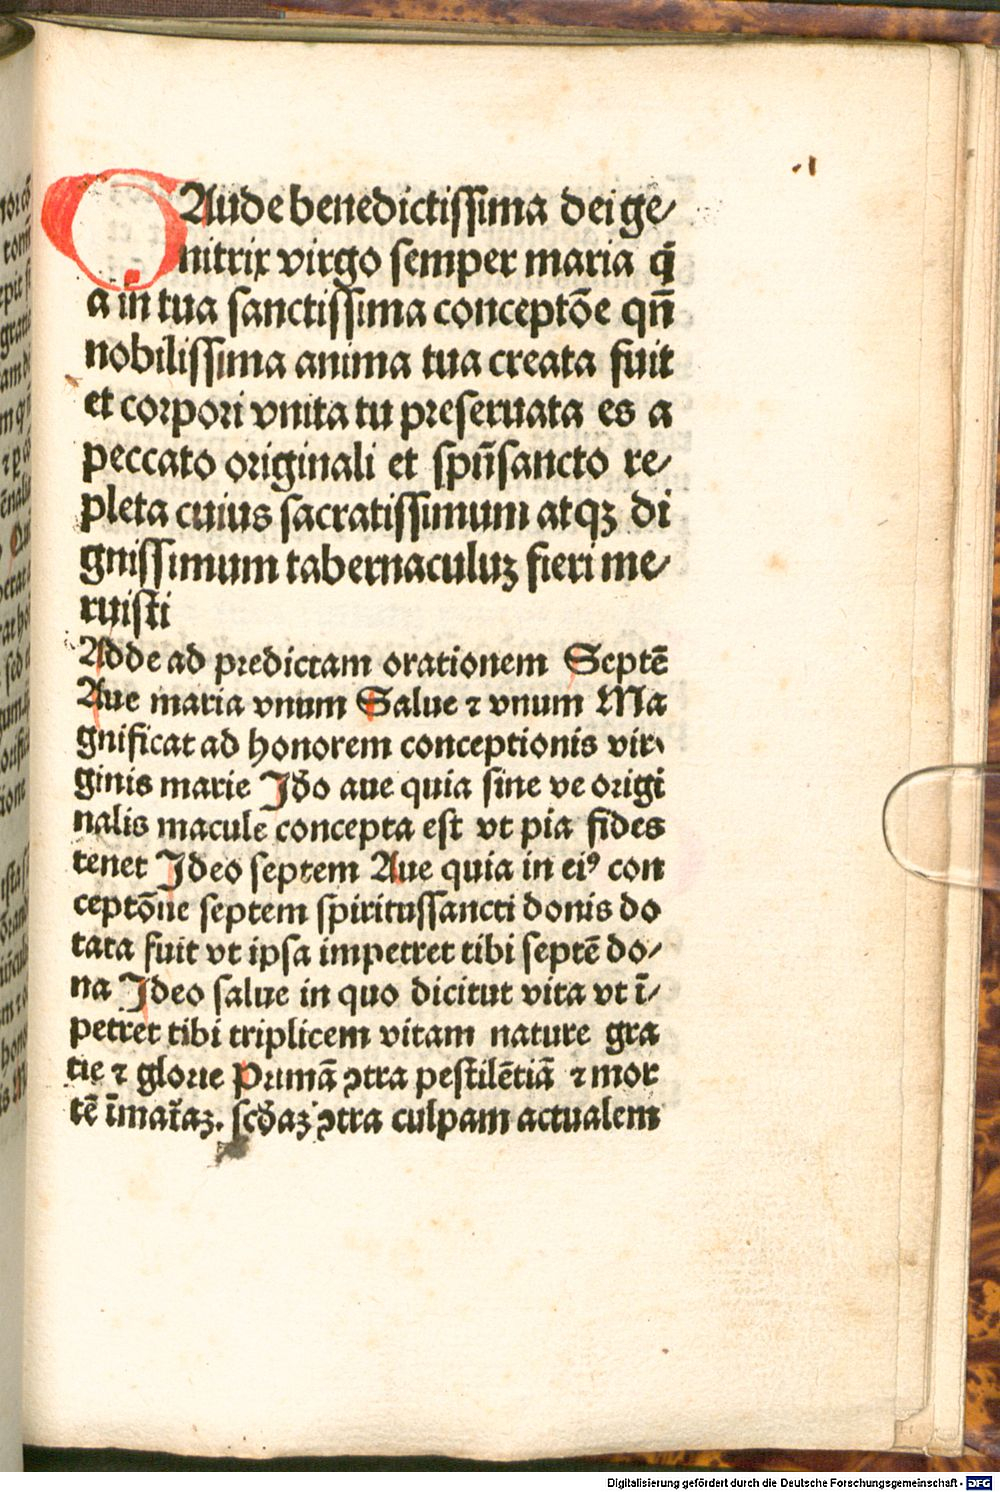 GAude benedictissima dei ge⸗
nitrix virgo semper maria q̄
a in tua sanctissima conceptōe qn̄
nobilissima anima tua creata fuit
et corpori vnita tu preseruata es a
peccato originali et spūsancto re⸗
pleta cuius sacratissimum atqꝫ di
gnissimum tabernaculuꝫ fieri me⸗
ruisti
Adde ad predictam orationem Septē
Aue maria vnum Salue ⁊ vnum Ma
gnificat ad honorem conceptionis vir⸗
ginis marie Jdo aue quia sine ve origi
nalis macule concepta est vt pia fides
tenet Jdeo septem Aue quia in eiꝰ con
ceptōne septem spiritussancti donis do
tata fuit vt ipsa impetret tibi septē do⸗
na Jdeo salue in quo dicitut vita vt ī⸗
petret tibi triplicem vitam nature gra
tie ⁊ glorie Primā ↄtra pestilētiā ⁊ mor
tē īmat̄aꝫ. scd̄aꝫ ↄtra culpam actualem
Digitalisierung gefördert durch die Deutsche Forschungsgemeinschaft - DFG